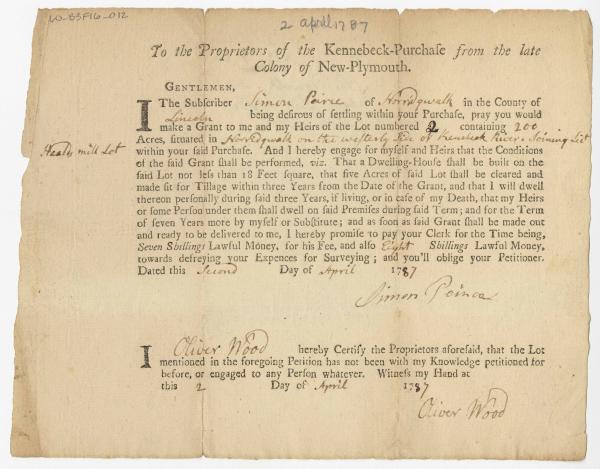 LO-B3F16-012
2 April 1787
To the Proprietors of the Kennebeck-Purchase from the late
Colony of New-Plymouth.
GENTLEMEN,
I The Subscriber Simon Peirce of Norrdgwalk in the County of
Lincoln being desirous of settling within your Purchase, pray you would
make a Grant to me and my Heirs of the Lot numbered 2 containing 200
Acres, situated in Norrdgwalk on the westerly Side of Kennebeck River Joining
Healds mill Lot within your said Purchase. And I hereby engage for myself and Heirs that the Conditions
of the said Grant shall be performed, viz. That a Dwelling-House shall be built on the
said Lot not less than 18 Feet square, that five Acres of said Lot shall be cleared and
made fit for Tillage within three Years from the Date of the Grant, and that I will dwell
thereon personally during said three Years, if living, or in case of my Death, that my Heirs
or some Person under them shall dwell on said Premises during said Term; and for the Term
of seven Years more by myself or Substitute; and as soon as said Grant shall be made out
and ready to be delivered to me, I hereby promise to pay your Clerk for the Time being,
Seven Shillings Lawful Money, for his Fee, and also Eight Shillings Lawful Money,
towards defreying your Expences for Surveying; and you'll oblige your Petitioner.
Dated this Second Day of April 1787
Simon Peirce
I Oliver Wood hereby Certify the Proprietors aforesaid, that the Lot
mentioned in the foregoing Petition has not been with my Knowledge petitioned for
before, or engaged to any Person whatever. Witness my Hand at
this 2 Day of April 1787
Oliver Wood